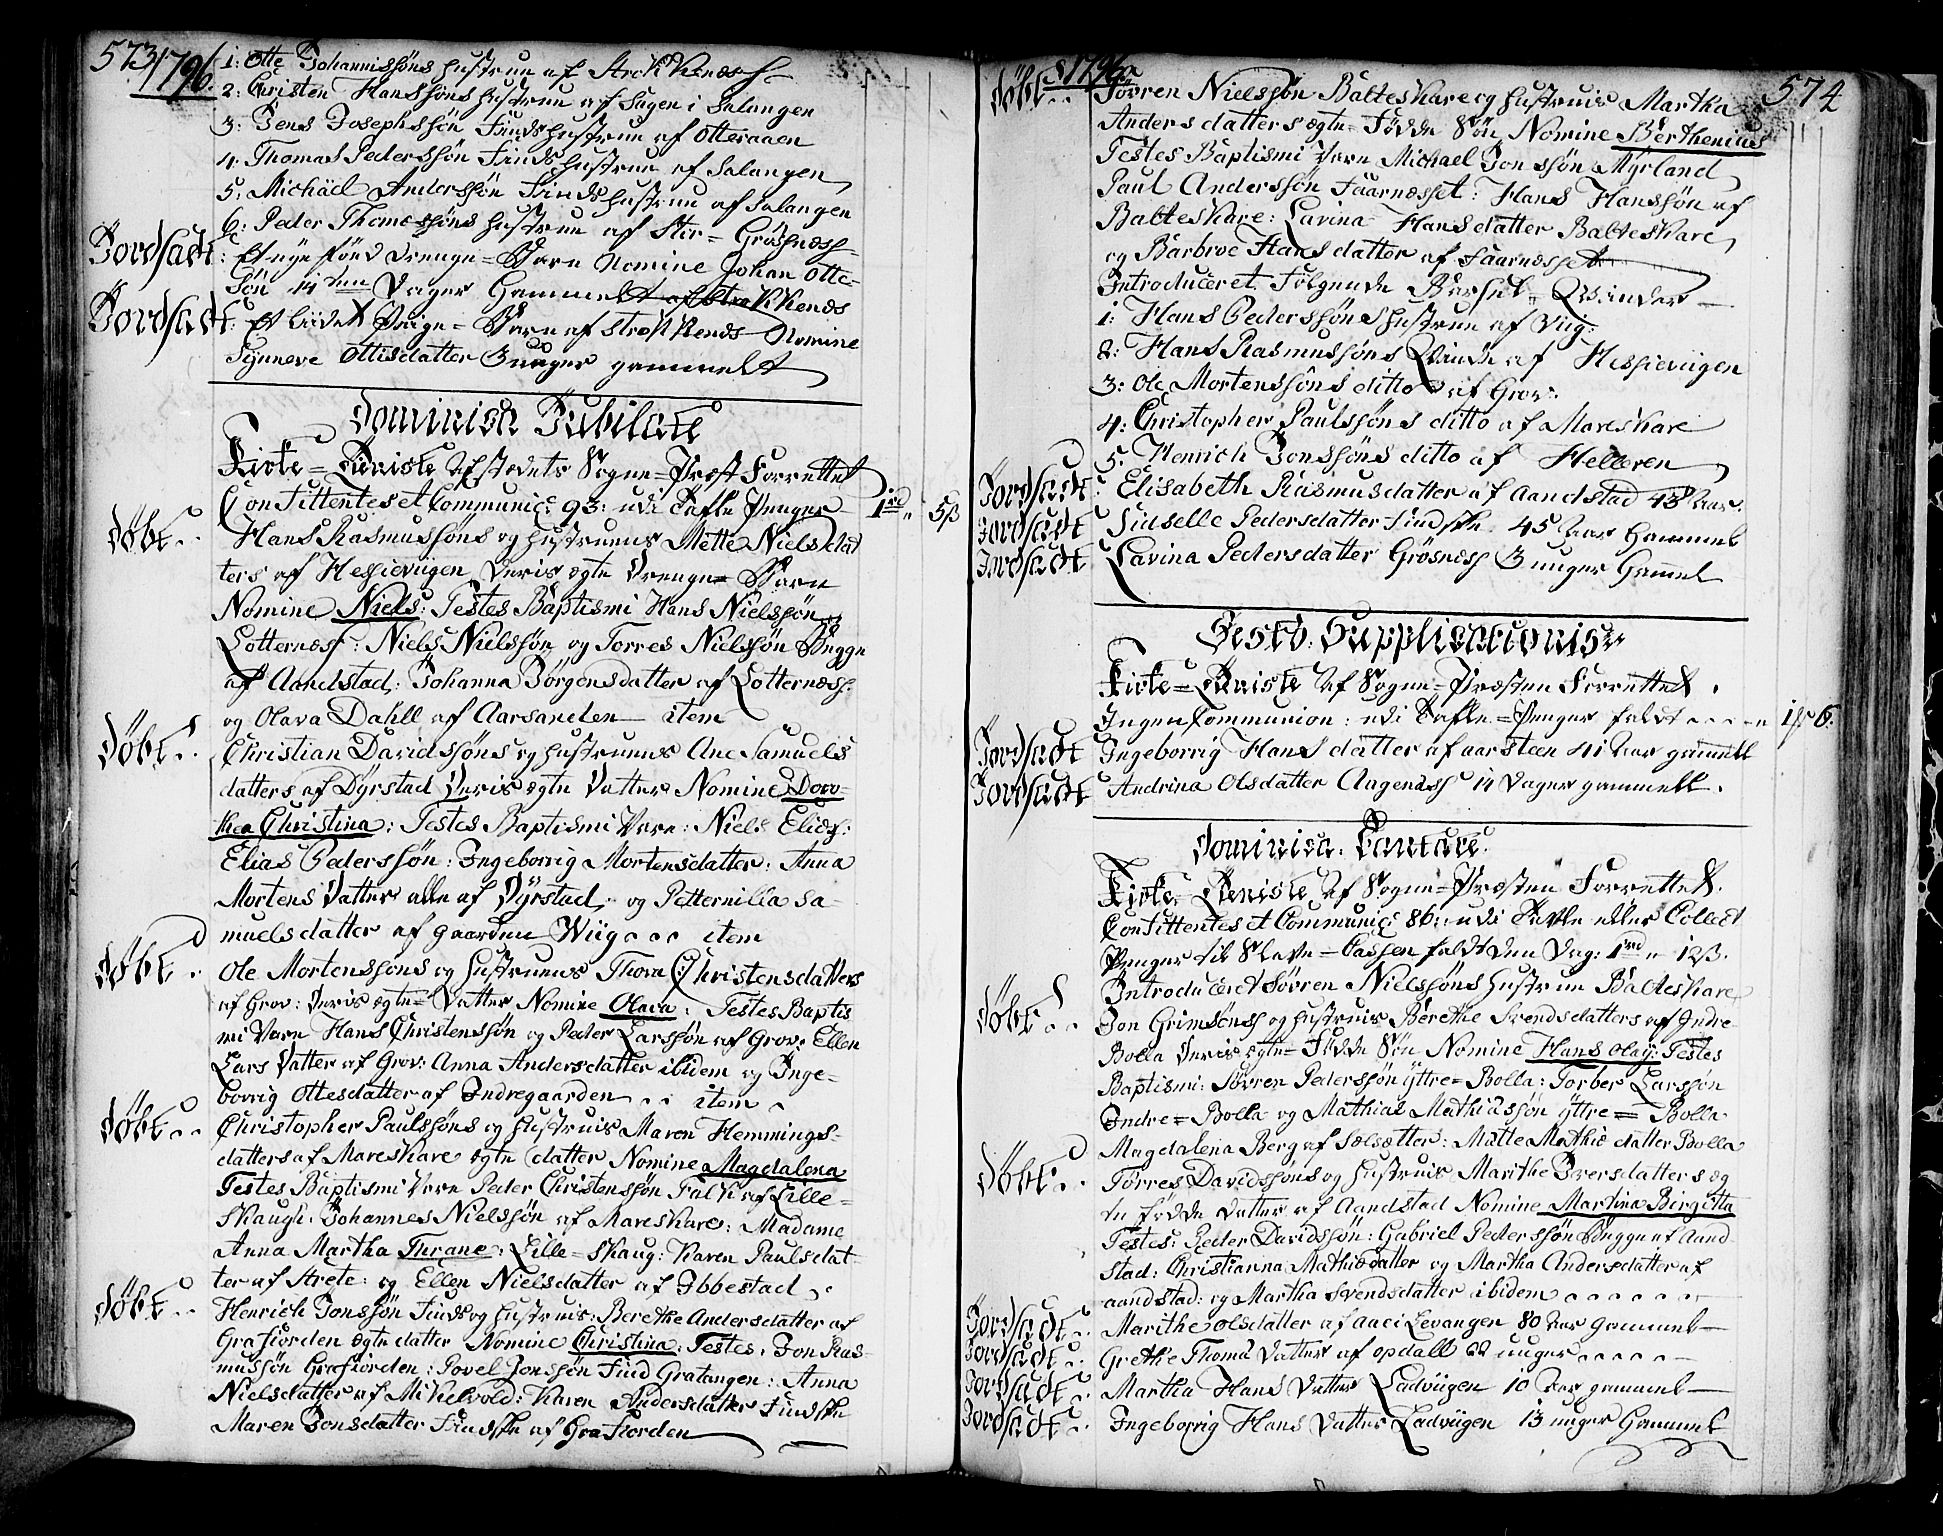 573 1796.
1: Otte Johannissøns Hustrue af StrokKenæss
2: Christen Hanssøns Hustrue af Sagen i Salangen
3: Jens Josephssøn Finds Hustrue af Otteraaen
4. Thomas Pederssøn Finds Hustrue af Salangen
5. Michäel Anderssøn Finds Hustrue af Salangen
6: Peder Thomessøns Hustrue af Stor= Grøssnæss
Jordfæstet: Et nye fødd Drenge=Barn Nomine Johan Otte-
søn 14 ten Dager Gammelt af StrokKenæs
Jordfæstet: Et liidet Piige=Barn af StrokKenæs Nomine
Synneve Ottisdatter 3 uuger gammelt
Dominica Jubilate
Kirke=Tieniste af stædets Sogne=Præst Forrettet
Confittentes et Communic: 93: udi Tafle Penger 1 rd „ 5 ß
Døbt.. Hans Rasmussøns og Hustruens Mette Nielsdat
ters af Hessieviigen Deris ægte Drenge=Barn
Nomine Niels: Testes Baptismi Hans Nielssøn
Lotternæss: Niels Nielssøn og Torres Nielssøn Begge
af Aandstad: Johanna Jörgensdatter af Lotternæss:
og Olava Dahll af Aarsanden item
Døbt.. Christian Davidssøns og Hustruens Ane Samuels
datters af Dyrstad Deris ægte Datter Nomine Doro-
thea Christina: Testes Baptismi Vare: Niels Elies:
Elias Pederssøn: Ingeborrig Mortensdatter: Anna
Mortens Datter alle af Dÿrstad, og Petternilla Sa-
muelsdatter af gaarden Wiig item
Døbt. Ole Mortenssøns og Hustruens Thora Christensdatters
af Grov: Deris ægte Datter Nomine Olava: Testes Baptis
mi Vare Hans Christenssøn og Peder Larssøn af Grov: Ellen
Lars Datter af Grov: Anna Andersdatter ibidem og Inge-
borrig Ottesdatter af Indregaarden item
Døbt.. Christopher Paulssøns og Hustruis Maren Hemmings-
datters af MaresKare ægte datter Nomine Magdalena
Testes Baptismi Vare Peder Christenssøn Falk af Lille-
Skaugh. Johannes Nielssøn af MaresKare: Madame
Anna Martha Thrane: Lille=Skaug: Karen Paulsdat-
ter af Strete: og Ellen Nielsdatter af Ibbestad
Døbt.. Henrich Jonssøn Finds og Hustruis: Berethe Andersdatter af
Grafiorden ægte datter Nomine Christina: Testes: Jon Ras-
mussøn Grafiorden: Povel Jonssøn Find Gratangen: Anna
Nielsdatter af Mikelvold: Karen Andersdatter Findske
Maren Jonsdatter Findske af Gra Fiorden
1796 574
Døbt.. Sörren Nielssøn BaltesKare og Hustruis Martha
Andersdatters ægte= Fødde Søn Nomine Berthenius
Testes Baptismi Vare Michael Jonssøn Mÿrland
Paul Anderssøn Faarnæsset: Hans Hanssøn af
BaltesKare: Lavina Hansdatter BaltesKare
og Barbroe Hansdatter af Faarnæsset
Introduceret Følgende Barsel=Qvinder
1: Hans Pederssøns Hustrue af Viig:
2: Hans Rasmussøns Qvinde af Hessieviigen
3: Ole Mortenssøns ditto af Grov:
4: Christopher Paulssøns ditto af MaresKare
5. Henrich Jonssøns ditto af Helleren
Jordfæstet: Elisabeth Rasmusdatter af Aandstad 43 Aar.
Jordfæstet Sidselle Pedersdatter Findske 45 Aar Gammel
Jordfæstet Lavina Pedersdatter Grøsnæss 3 uuger Gamel
Festo Supplicationis
Kirke=Tieniste af Sogne=Præsten Forrettet.
Ingen Communion: udi Tafle=Penger faldt 1 ß 6.
Jordfæstet Ingeborrig Hansdatter af Aarsteen 41 Aar gammell
Jordfæstet Andrina Olsdatter Aagenæss 14 Dager gammell.
Dominica: Cantate.
Kirke=Tieniste af Sogne=Præsten Forrettet.
Confittentes et Communic: 86: udi Tavle eller Collect
Penger til Slave=Cassen faldt den Dag: 1 rd „ 12 ß.
Introduceret Sörren Nielssøns Hustrue BaltesKare
Døbt.. Jon Grimsøns og Hustruis Berethe Svendsdatters af Indre-
Bolla Deris ægte=Fødde Søn Nomine Hans Olaÿ: Testes
Baptismi: Sörren Pederssøn Yttre=Bolla: Torber Larssøn
Indre=Bolla og Mathias Mathiassøn Yttre=Bolla
Magdalena Berg af Sælsætter: Mætte Mathiedatter Bolla
Døbt.. Torres Davidssøns og Hustruis Marithe Iversdatters æg
te fødde Datter af Aandstad Nomine Martina Birgitta
Testes: Peder Davidssøn: Gabriel Pederssøn Begge af Aand-
stad: Christianna Mathiedatter og Martha Andersdatter af
aandstad: og Martha Svendsdatter ibidem
Jordfæstet.. Marithe Olsdatter af Levangen 80 Aar gammel
Jordfæstet.. Grethe Thoms Datter af Opdall 2 uuger
Jordfæstet.. Martha Hans Datter Ladviigen 10 Aar gammel
Jordfæstet.. Ingeborrig Hans Datter Ladviigen 13 uuger Gammel